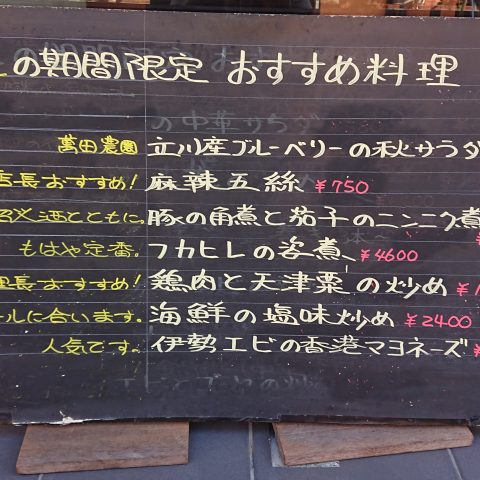 の期間限定 おすすめ料理
萬田農園 立川産ブルーベリーの秋サラダ
店長おすすめ! 麻辣五絲 ¥750
酒とともに。豚の角煮と茄子のニンニク煮
もはや定番。フカヒレの姿煮、¥4600
理長おすすめ! 鶏肉と天津栗の炒め ¥1
ールに合います。海鮮の塩味炒め ¥2400
人気です。伊勢エビの香港マヨネーズ ¥